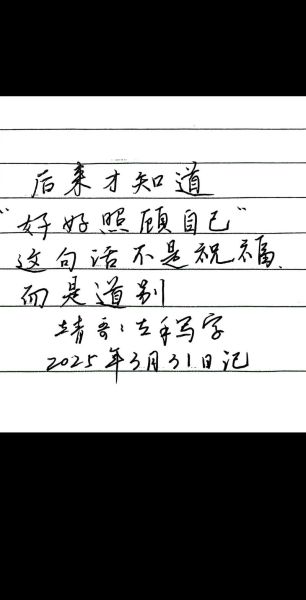 后来才知道
"好好照顾自己"
这句话不是祝福.
而是道别
靖哥:左手写字
2025年3月31日记